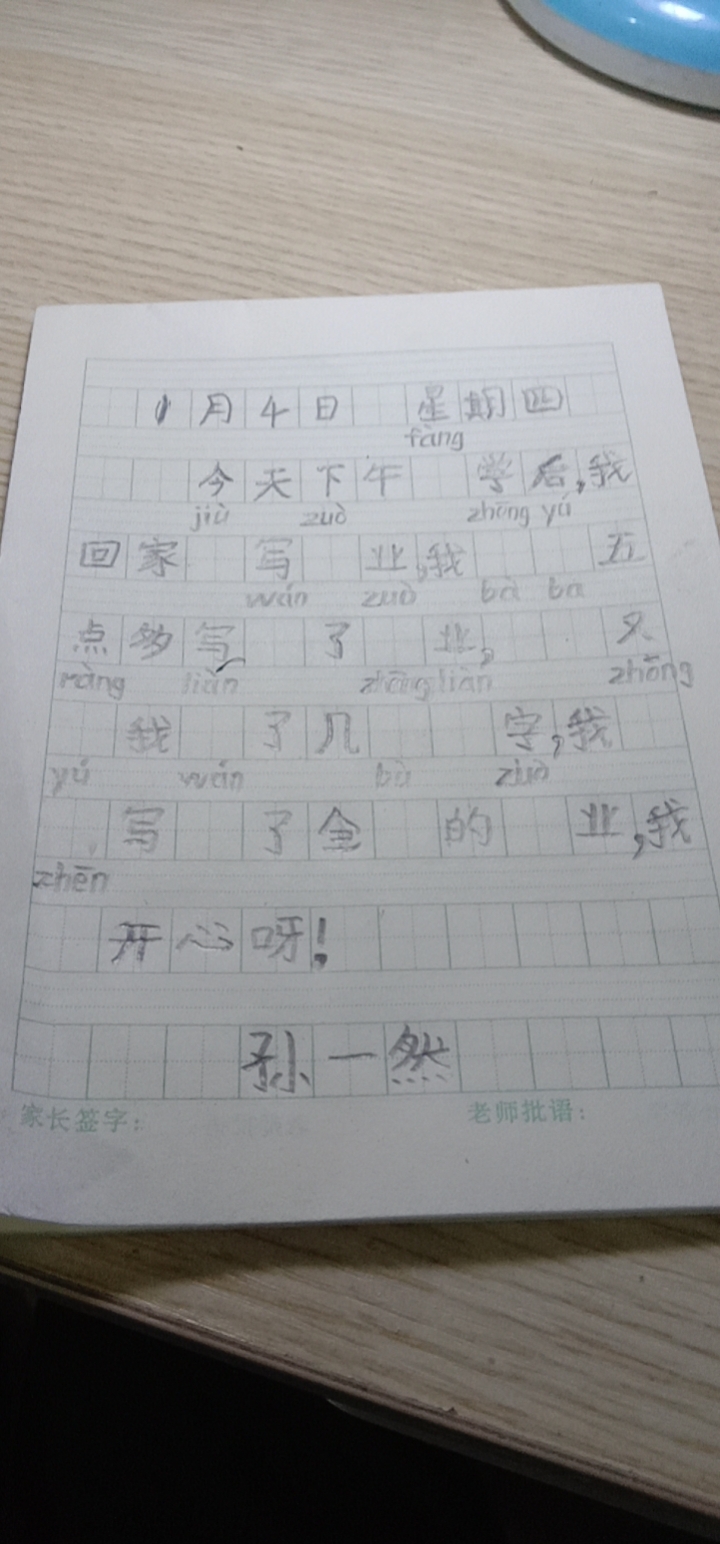 1月4日 星期四
fàng
今天下午 学后,我
jiù zuò zhōng yú
回家 写 业,我 五
wán zuò bà ba
点多写 了 业, 又
ràng liàn zhōng liàn zhōng
我 了几 字,我
yú wán bù zuò
写 了全 的 业,我
zhēn
开心呀!
孙一然
家长签字: 老师批语: